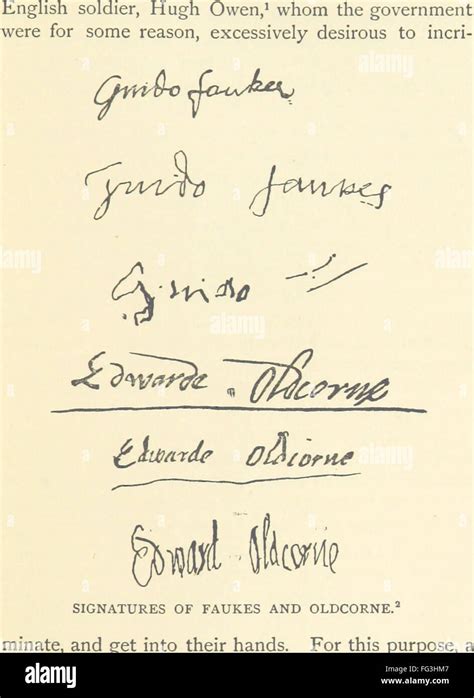 English soldier, Hugh Owen,¹ whom the government
were for some reason, excessively desirous to incri-
Guido faukes
Guido faukes
Guido
Edwarde Oldcorne
Edwarde Oldcorne
Edward Oldcorne
SIGNATURES OF FAUKES AND OLDCORNE.²
minate, and get into their hands. For this purpose, a
alamy
alamy stock photo
FG3HM7
www.alamy.com